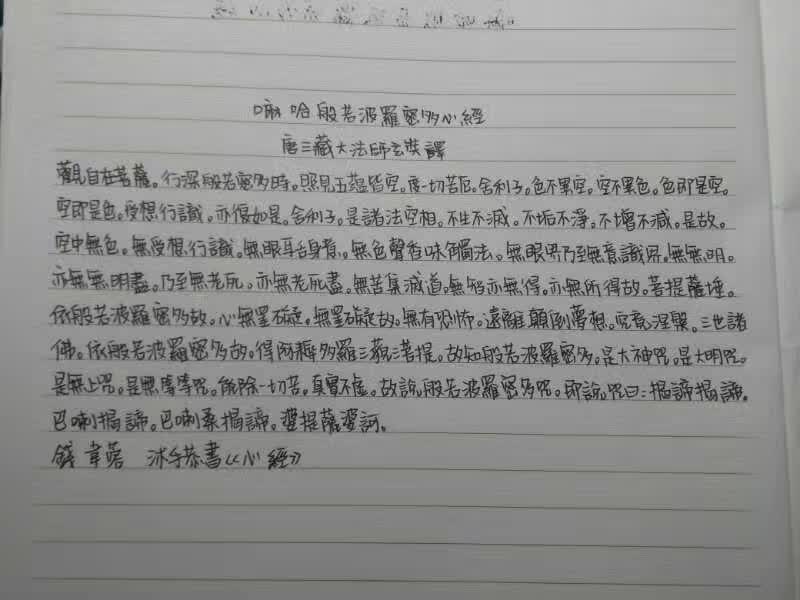 嘛哈般若波羅密多心經
唐三藏大法師玄奘譯
觀自在菩薩。行深般若密多時。照見五蘊皆空。度一切苦厄。舍利子。色不異空。空不異色。色即是空。
空即是色。受想行識。亦復如是。舍利子。是諸法空相。不生不滅。不垢不淨。不增不減。是故。
空中無色。無受想行識。無眼耳舌身意。無色聲香味觸法。無眼界乃至無意識界。無無明。
亦無無明盡。乃至無老死。亦無老死盡。無苦集滅道。無智亦無得。亦無所得故。菩提薩埵。
依般若波羅密多故。心無罣礙。無罣礙故。無有恐怖。遠離顛倒夢想。究竟涅槃。三世諸
佛。依般若波羅密多故。得阿耨多羅三藐三菩提。故知般若波羅密多。是大神咒。是大明咒。
是無上咒。是無等等咒。能除一切苦。真實不虛。故說般若波羅密多咒。即說咒曰：揭諦揭諦。
巴喇揭諦。巴喇桑揭諦。婆提薩婆訶。
錢韋蓉 沐手恭書《心經》